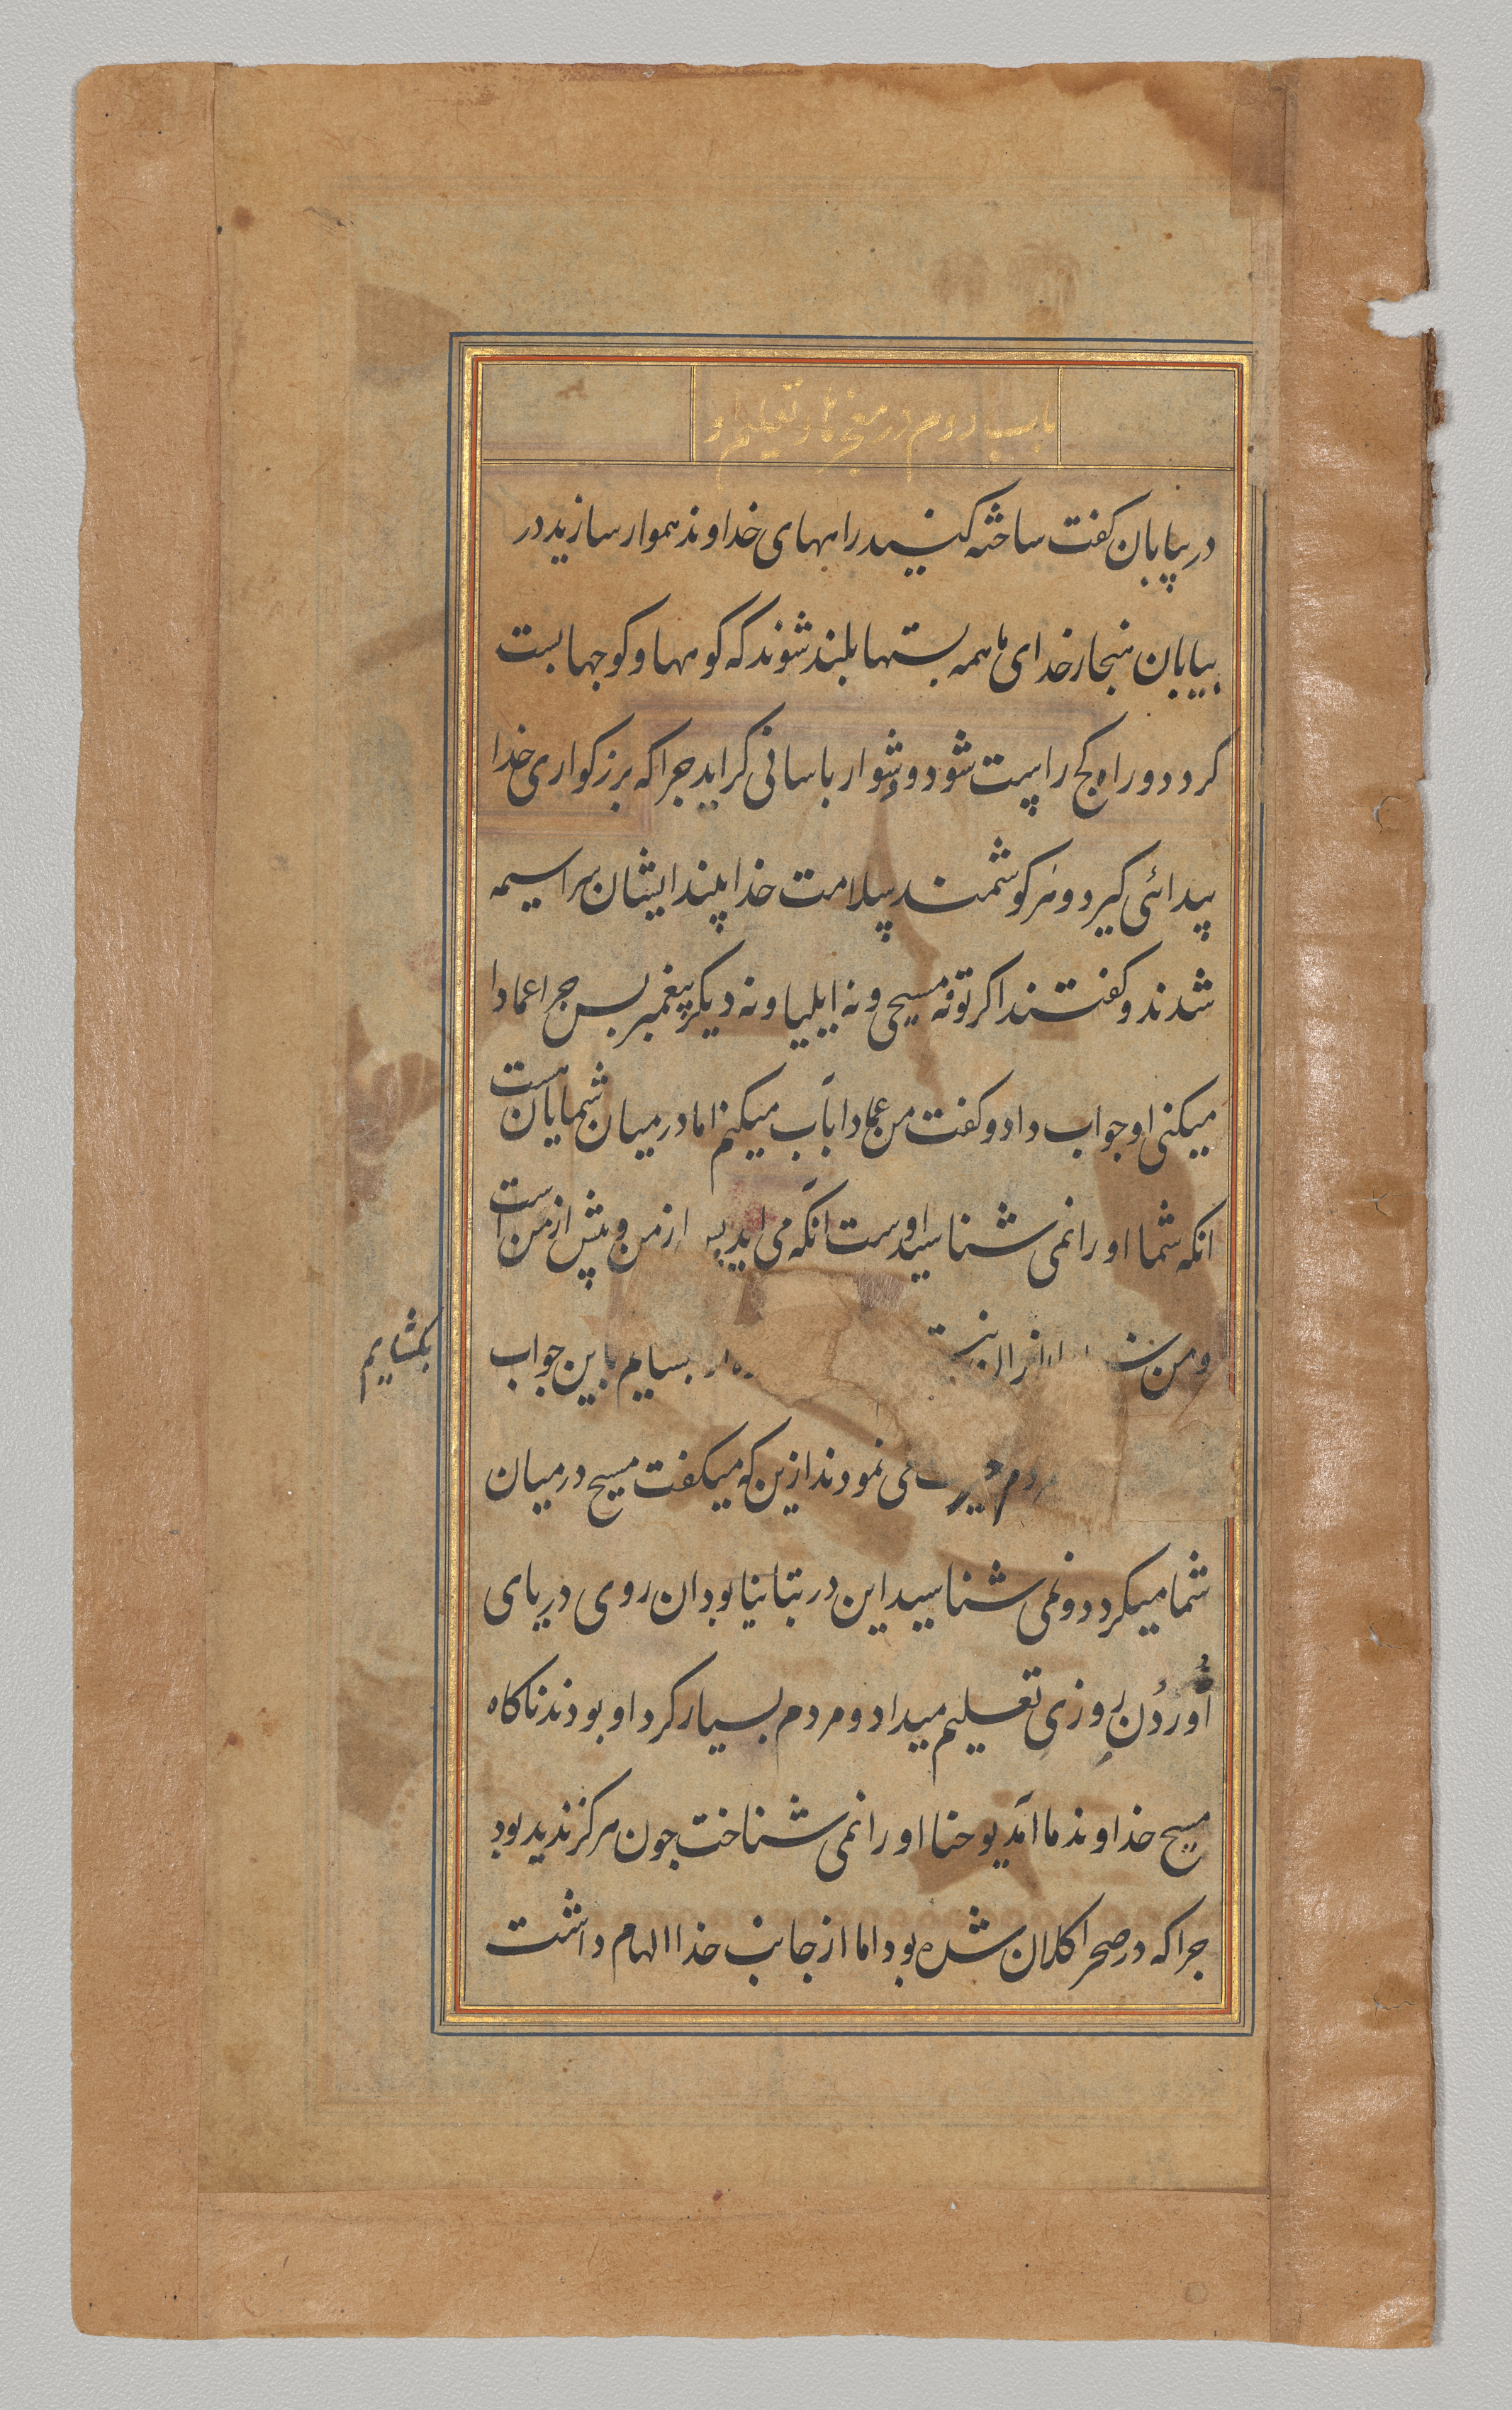 باب دوم در معجزها و تعلیم او
در بیابان کفت ساخته کنید راههای خداوند هموار سازید در
بیابان هنجار خدای ما همه پستها بلند شوند که کوهها و کوچها پست
کردد و راه کج راست شود و دشوار باسانی کراید چرا که بزرکواری خدا
پیدائی کیرد و هر کوشتمند سلامت خدا بیند ایشان سراسیمه
شدند و کفتند اکر تو نه مسیحی و نه ایلیا و نه دیکر پیغمبر پس چرا عمادا
میکنی او جواب داد و کفت من عمادا بآب میکنم اما در میان شمایان هست
انکه شما او را نمی شناسید اوست انکه می اید از من و پیش از من است
و من
بسایم باین جواب
بکشایم
مردم می نمودند ازین که میکفت مسیح در میان
شما میکردد و نمی شناسید این در بتانیا بود ان روی دریای
اُوردُن روزی تعلیم میداد و مردم بسیار کرد او بودند ناکاه
مسیح خداوند ما آمد یوحنا او را نمی شناخت چون هرکز ندید بود
چرا که در صحرا کلان شده بود اما از جانب خدا الهام داشت